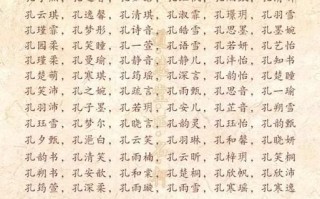 孔云琪，孔逸馨，孔清琪，孔淑霏，孔璟玥，孔羽雪
孔瑾雯，孔梦彤，孔诗音，孔皓雪，孔思墨，孔墨婉
孔囡柔，孔笑瞳，孔一萱，孔语雪，孔若妍，孔艺怡
孔瑾雯，孔曼瑜，孔静音，孔静儿，孔沣怡，孔知书
孔楚萌，孔寒琪，孔筠瑶，孔深韵，孔韵怡，孔楚瞳
孔笑沛，孔之婉，孔疏言，孔雨甄，孔思音，孔一瑜
孔羽沛，孔子墨，孔若玥，孔安儿，孔芷音，孔朔雪
孔玟玉，孔梦尔，孔晓言，孔韵灵，孔玟玉，孔韵怡
孔夕甄，孔滟白，孔云笑，孔羽琳，孔和馨，孔晓妍
孔韵书，孔清笑，孔雨楠，孔云昕，孔梓玥，孔笑桐
孔朔书，孔安歆，孔和棠，孔曼楚，孔欣帆，孔欣沛
孔筠萱，孔深柔，孔雨璇，孔雨雪，孔寒瑶，孔寒逸